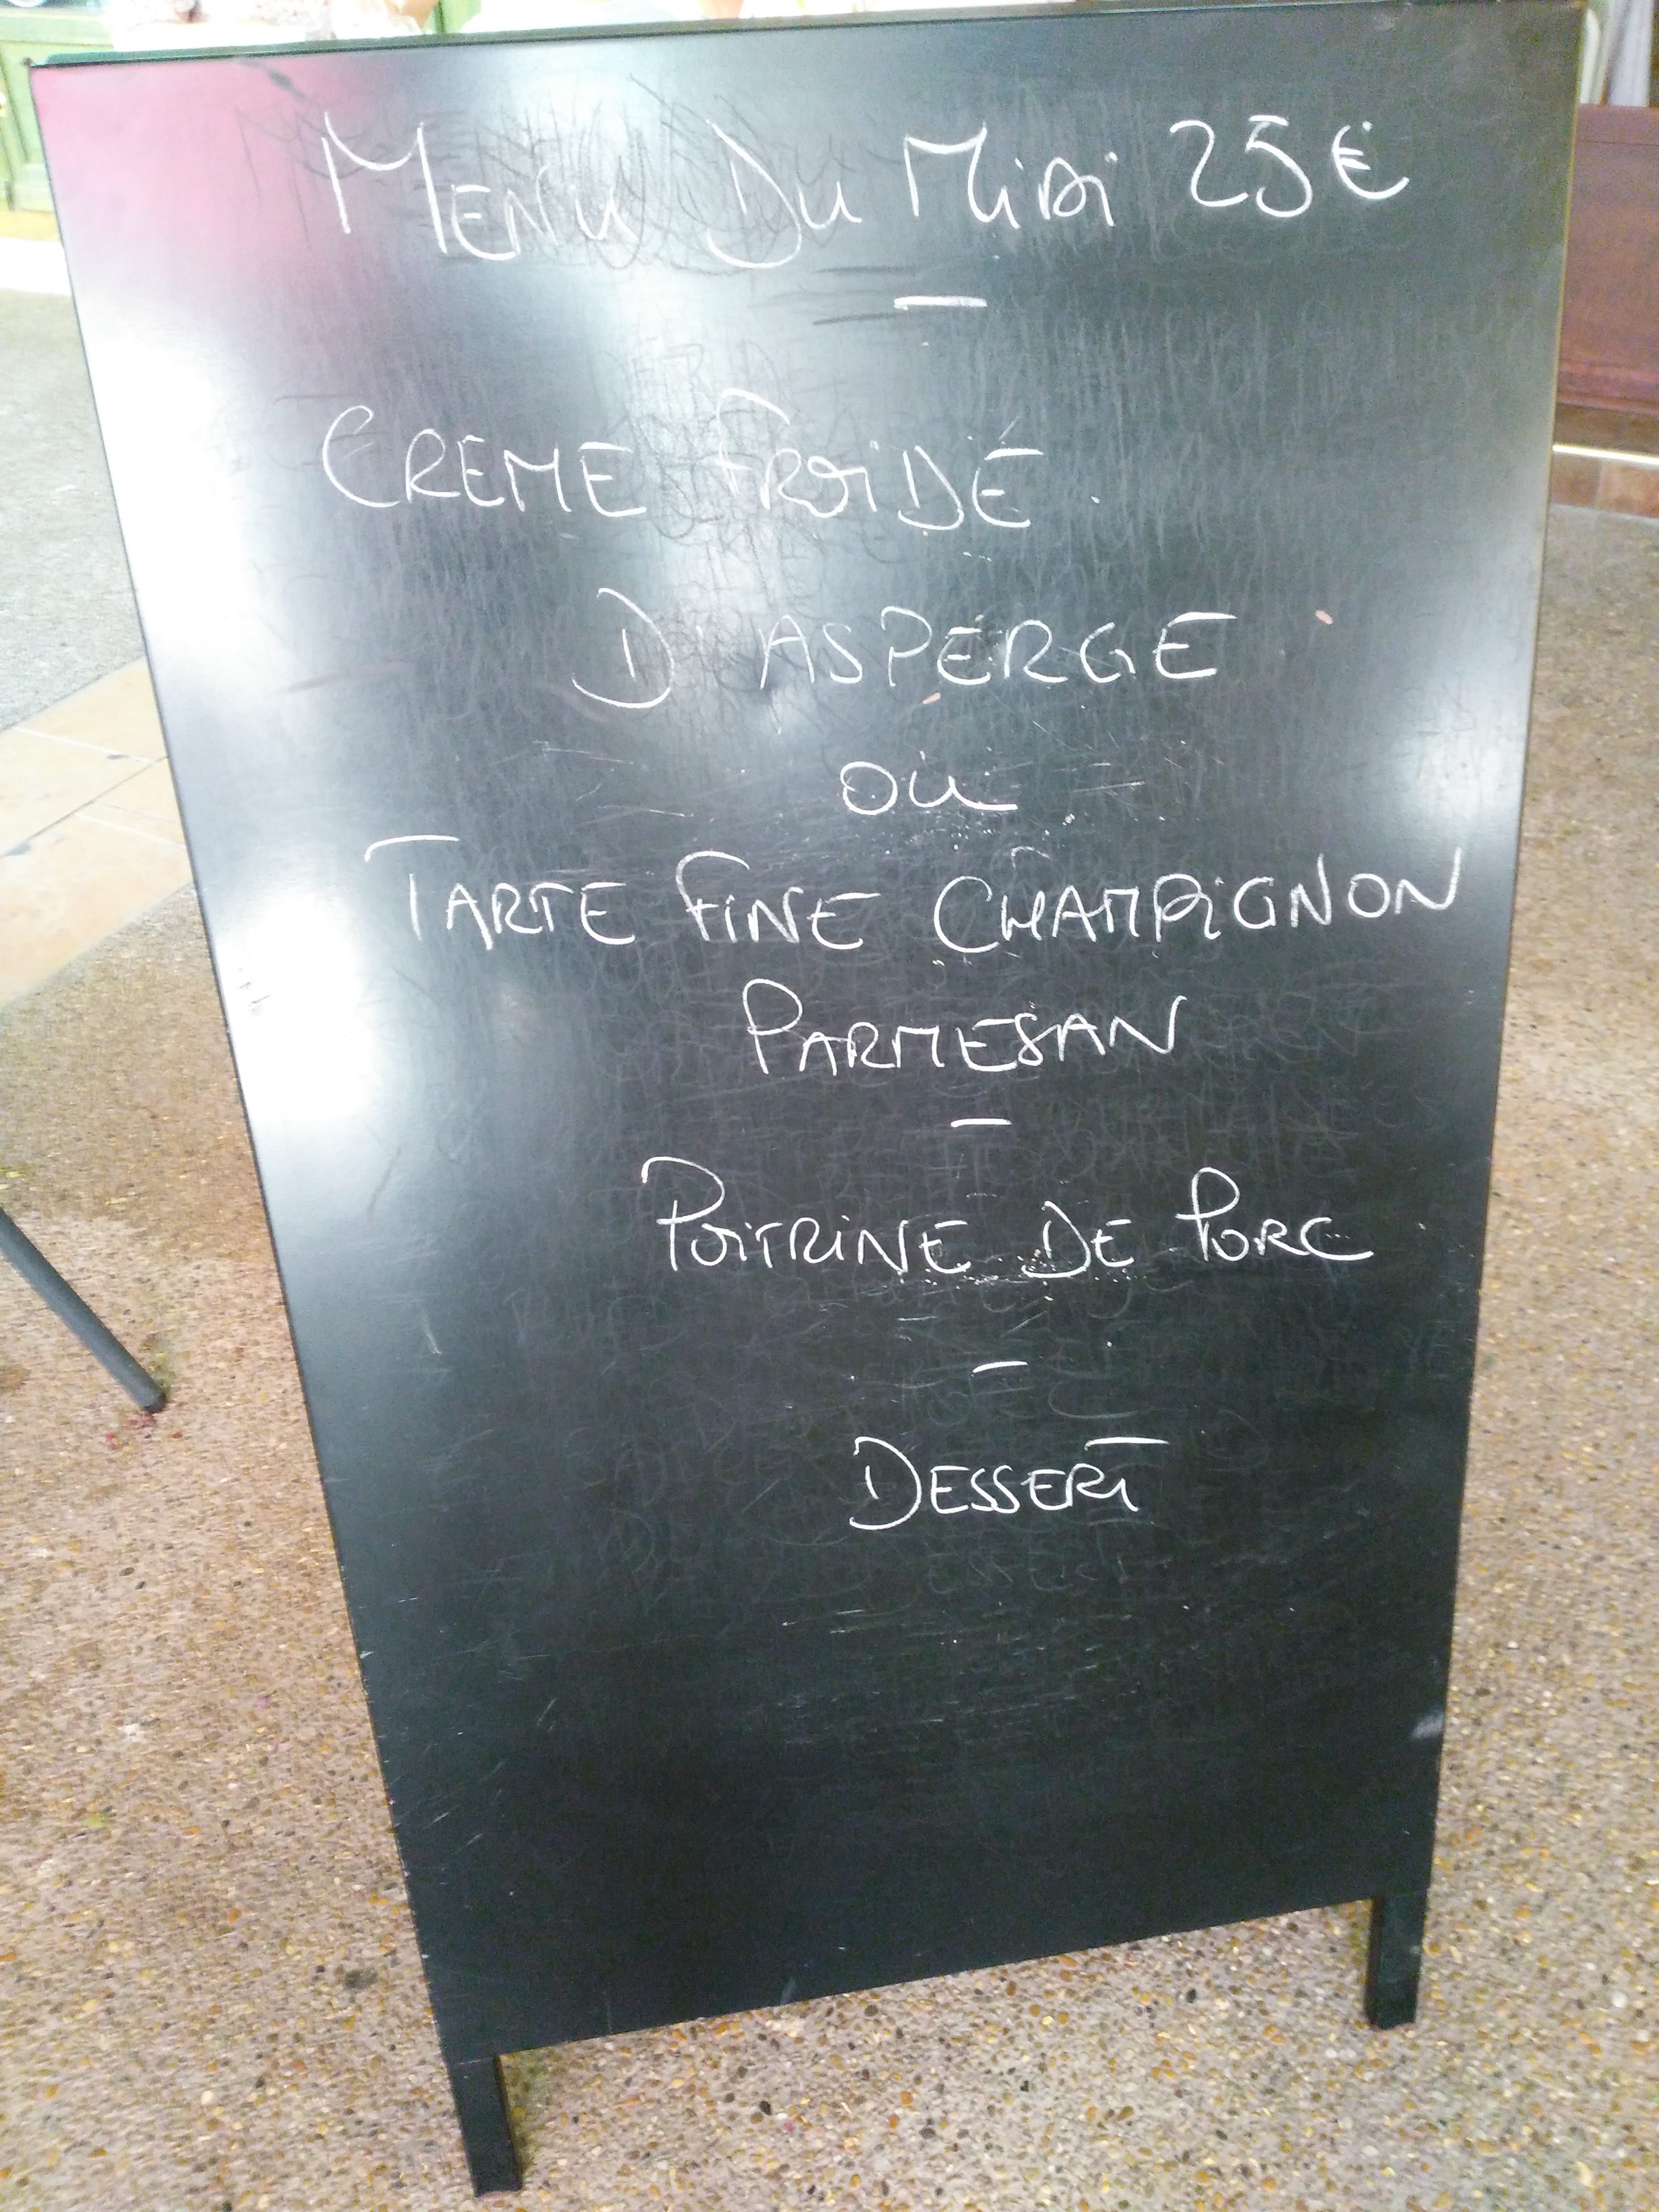 MENU DU MiDi 25€
CREME FROiDE
D'ASPERGE
ou
TARTE FiNE CHAMPiGNON
PARMESAN
POiTRiNE DE PORC
DESSERT